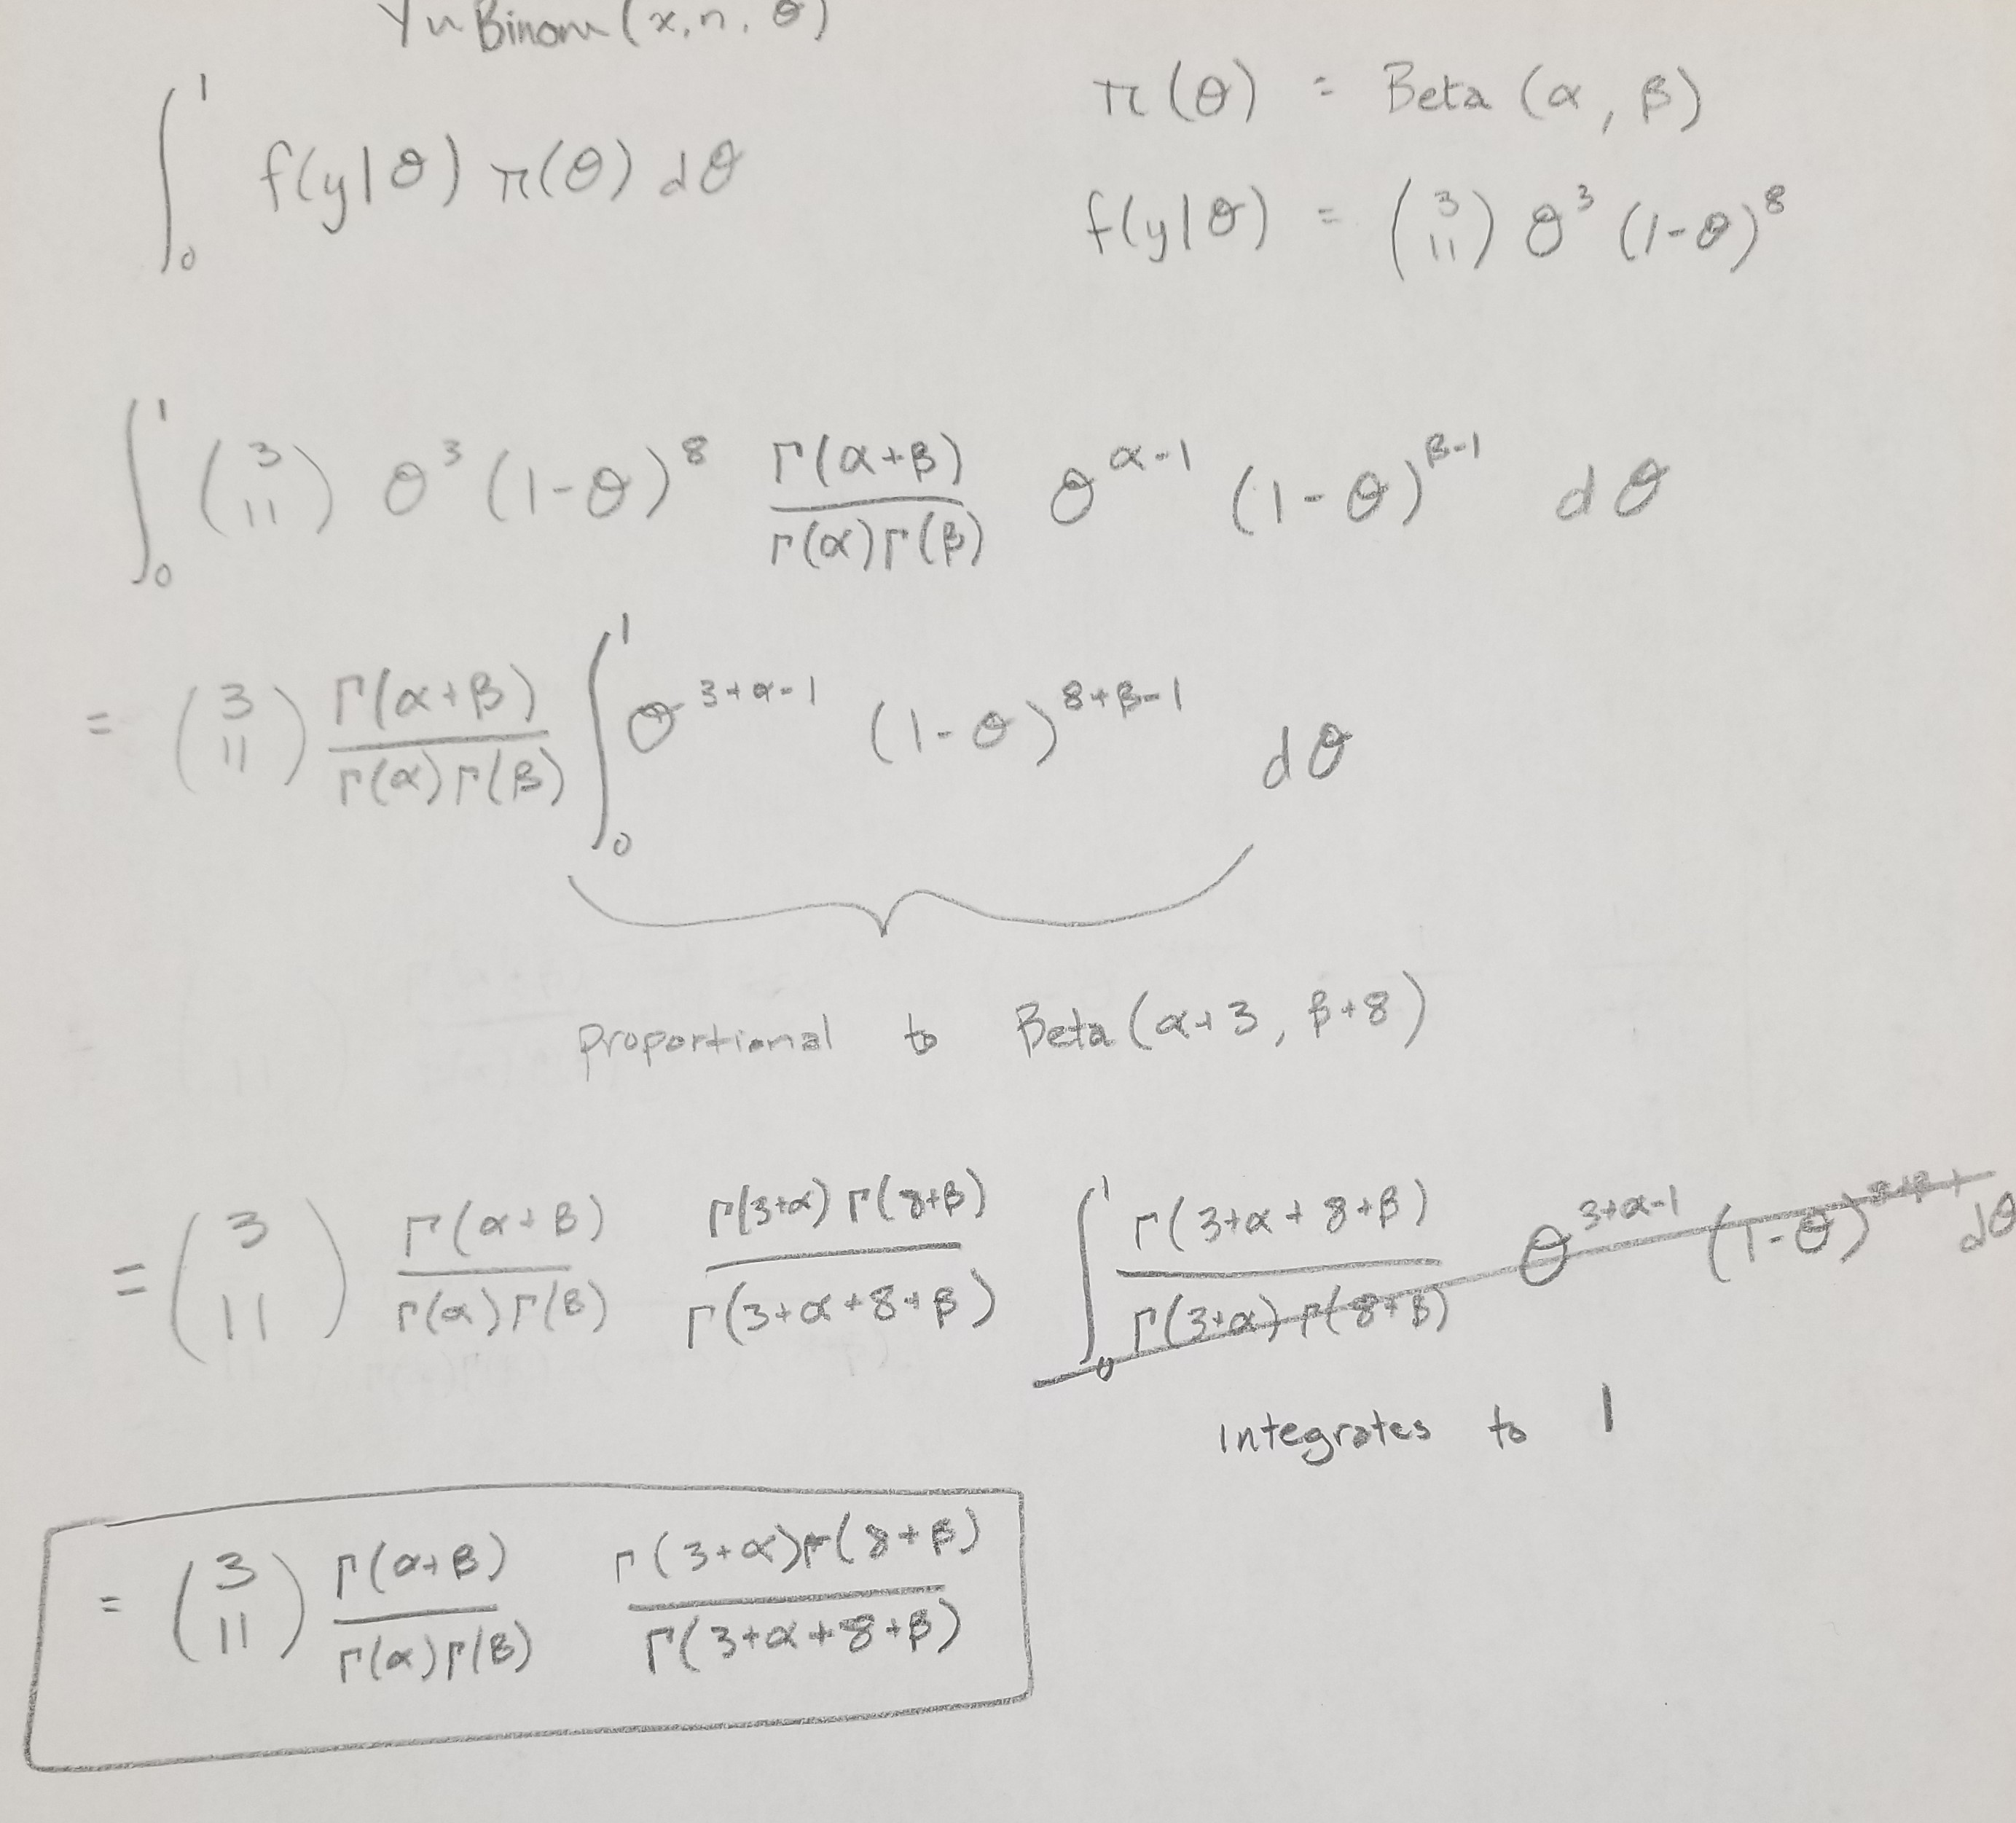 Y ~ Binom(x, n, θ)
∫₀¹ f(y|θ) π(θ) dθ
π(θ) = Beta(α, β)
f(y|θ) = (3 11) θ³ (1-θ)⁸
∫₀¹ (3 11) θ³ (1-θ)⁸ Γ(α+β)/Γ(α)Γ(β) θ^(α-1) (1-θ)^(β-1) dθ
= (3 11) Γ(α+β)/Γ(α)Γ(β) ∫₀¹ θ^(3+α-1) (1-θ)^(8+β-1) dθ
proportional to Beta(α+3, β+8)
= (3 11) Γ(α+β)/Γ(α)Γ(β) Γ(3+α)Γ(8+β)/Γ(3+α+8+β) ∫₀¹ Γ(3+α+8+β)/Γ(3+α)Γ(8+β) θ^(3+α-1) (1-θ)^(8+β-1) dθ
integrates to 1
= (3 11) Γ(α+β)/Γ(α)Γ(β) Γ(3+α)Γ(8+β)/Γ(3+α+8+β)